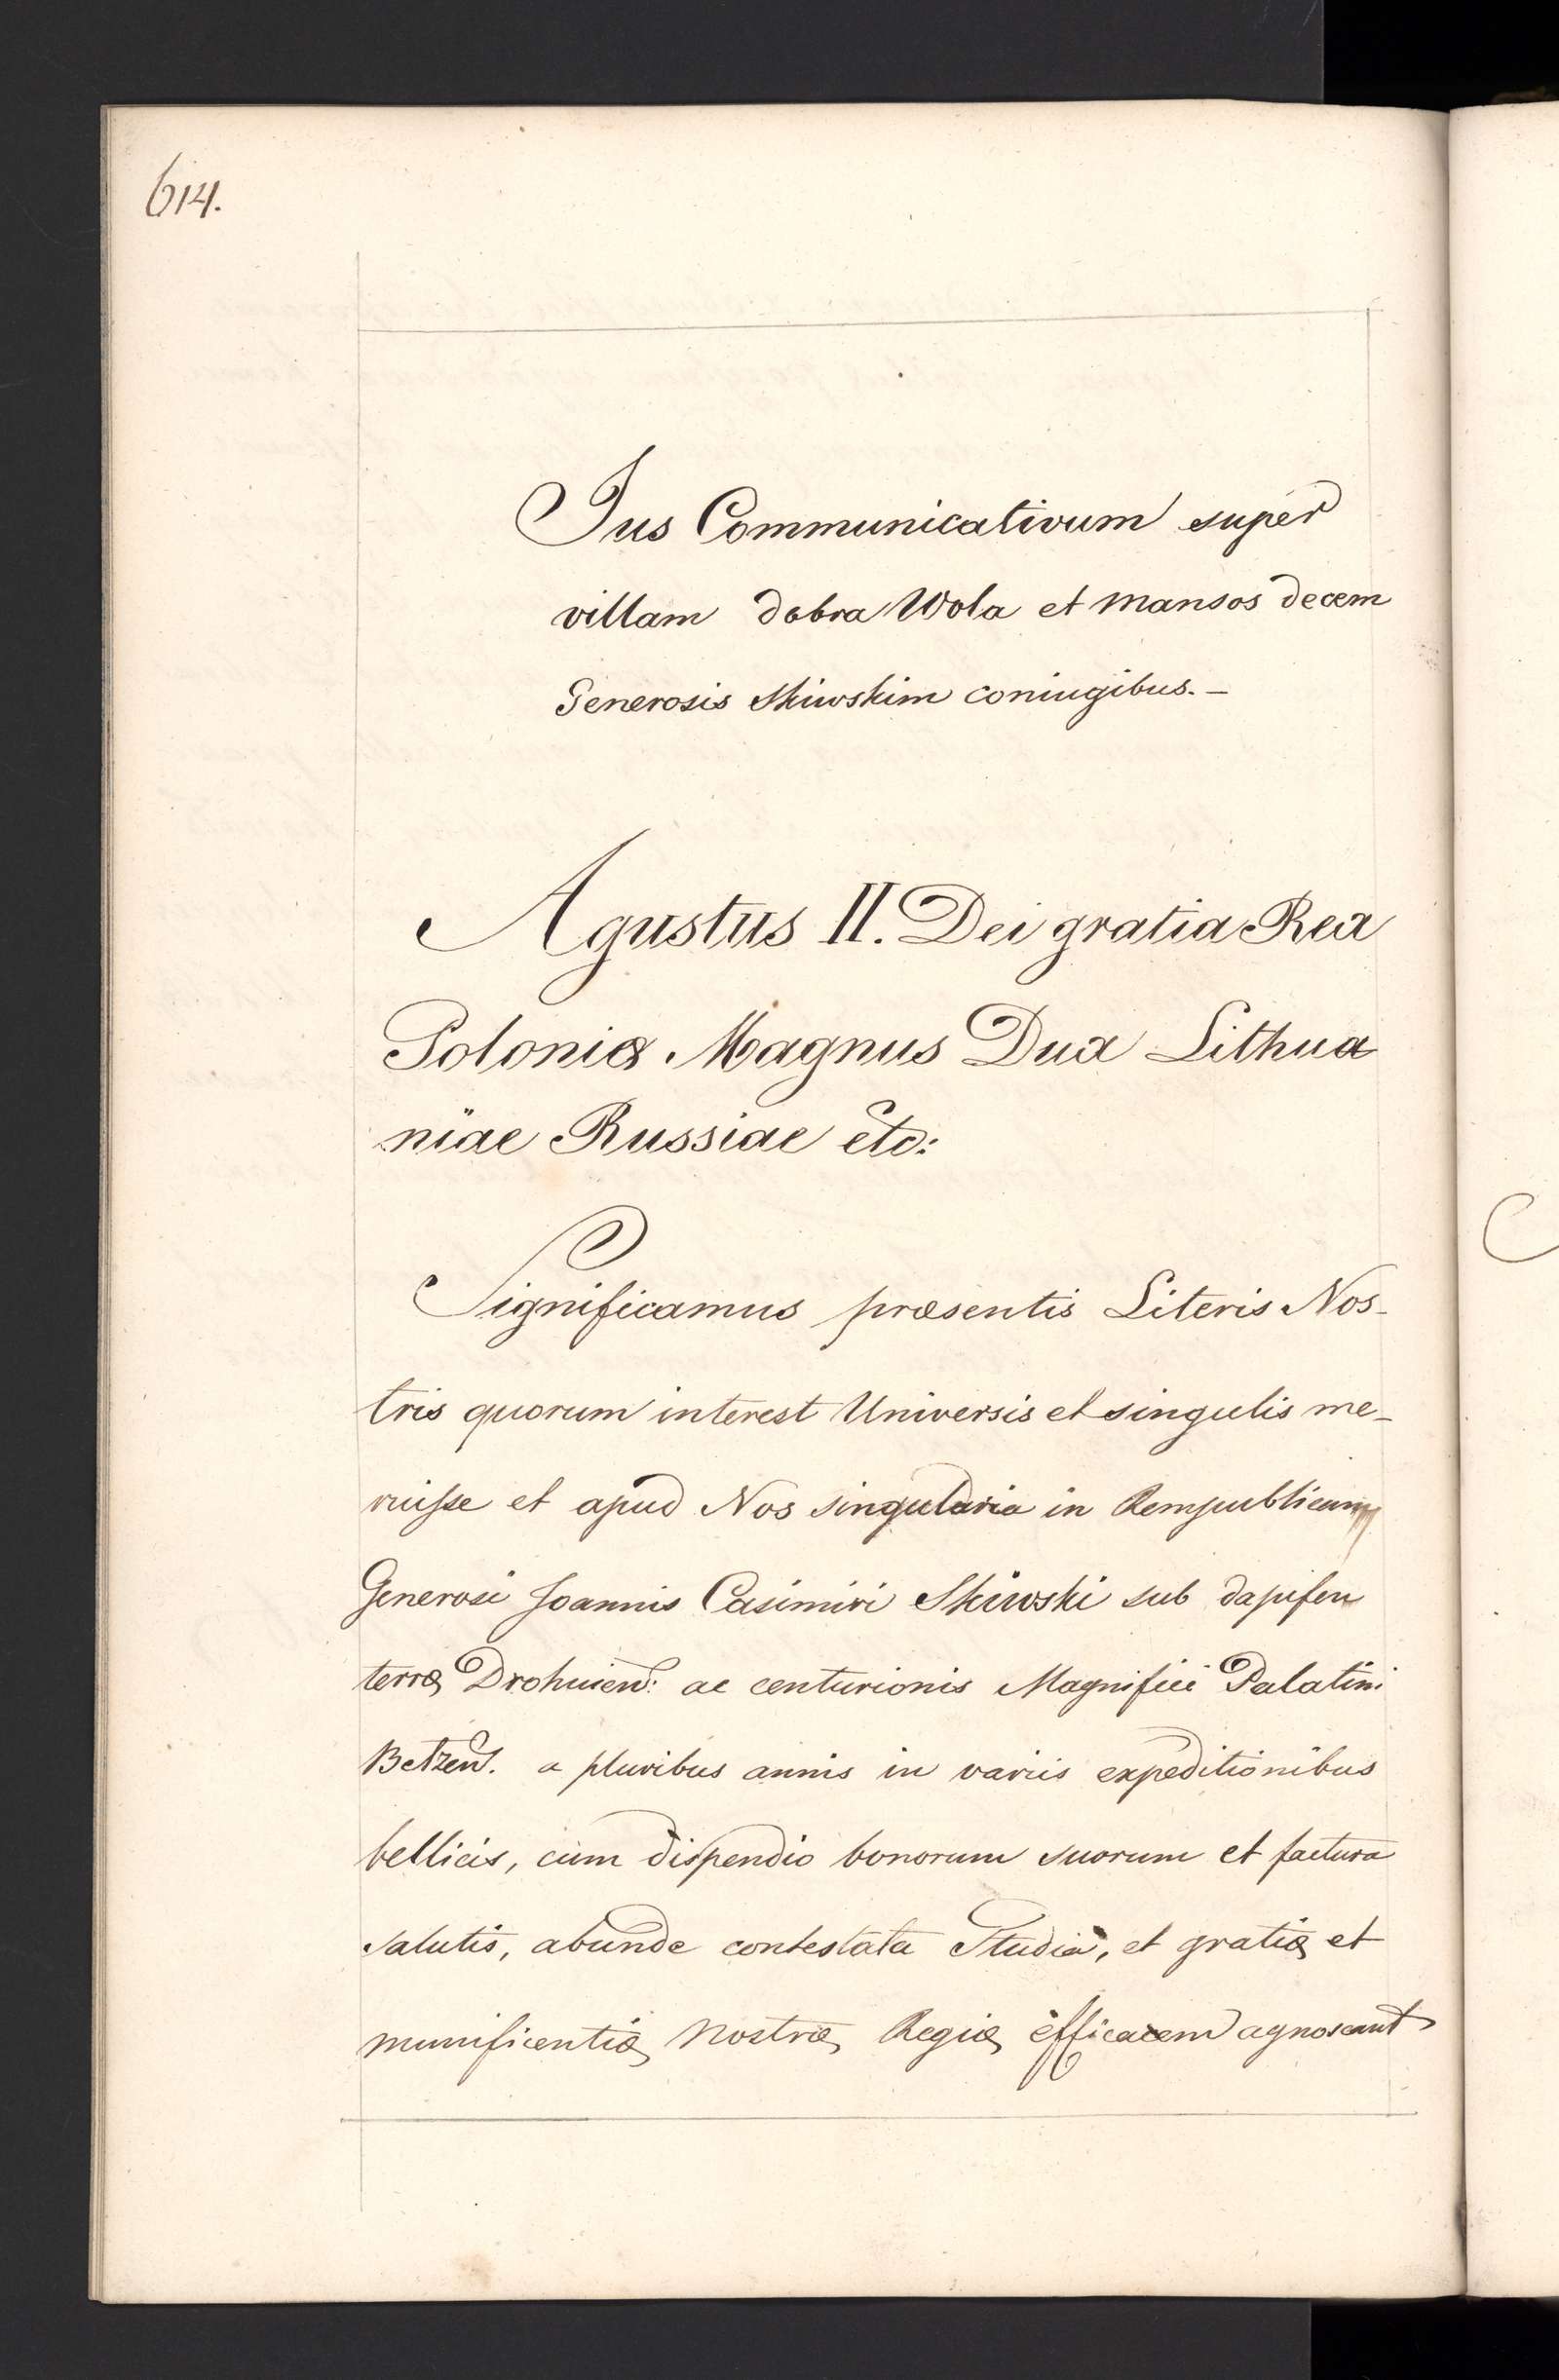 614.
Jus Communicativum super
villam dobra Wola et mansos decem
Generosis Skiwskim coniugibus. –
Agustus II. Dei gratia Rex
Poloniæ Magnus Dux Lithua
niae Russiae etc:
Significamus præsentis Literis Nos-
tris quorum interest Universis et singulis me-
ruisse et apud Nos singularia in Rempublicam
Generosi Joannis Casimiri Skiwski sub dapifen
terræ Drohuien: ac centurionis Magnifici Palatini
Betzen. a pluribus annis in variis expeditionibus
bellicis, cum dispendio bonorum suorum et factura
salutis, abunde contestata Studia, et gratiæ et
munificentiæ nostræ Regiæ efficacem agnoscant